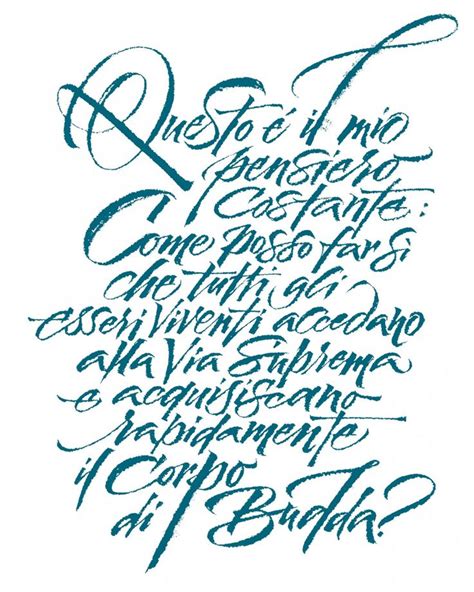 Questo é il mio
pensiero
costante:
Come posso far sì
che tutti gli
esseri viventi accedano
alla Via Suprema
e acquisiscano
rapidamente
il Corpo
di Budda?